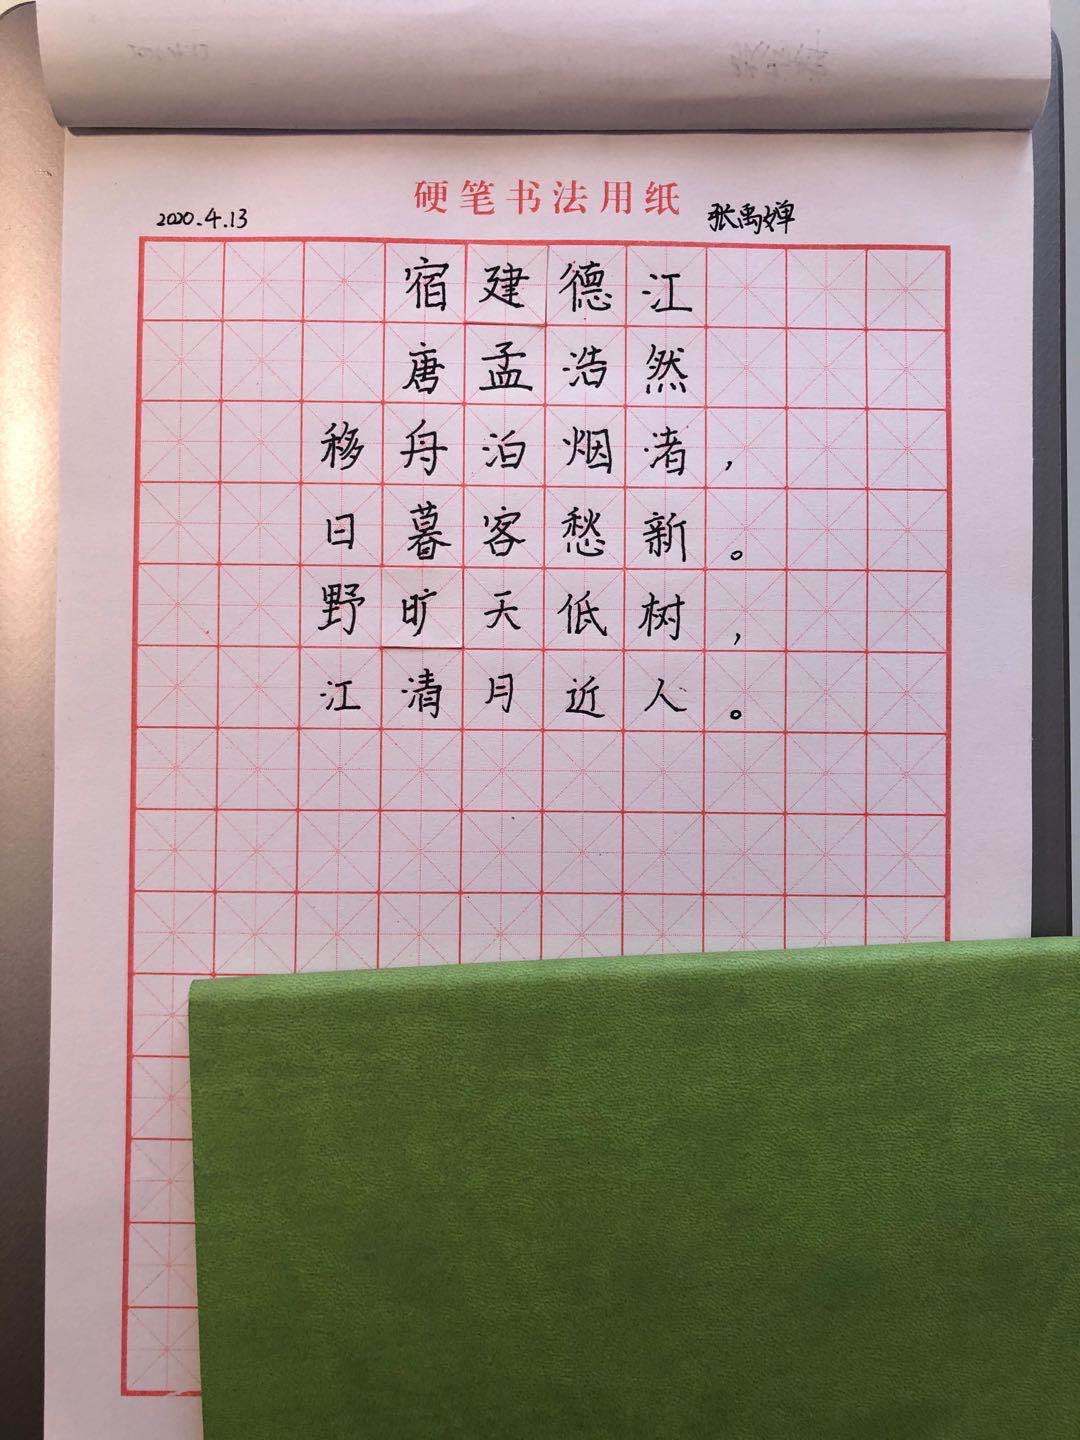 硬笔书法用纸
2020.4.13 张禹婵
宿建德江
唐孟浩然
移舟泊烟渚，
日暮客愁新。
野旷天低树，
江清月近人。